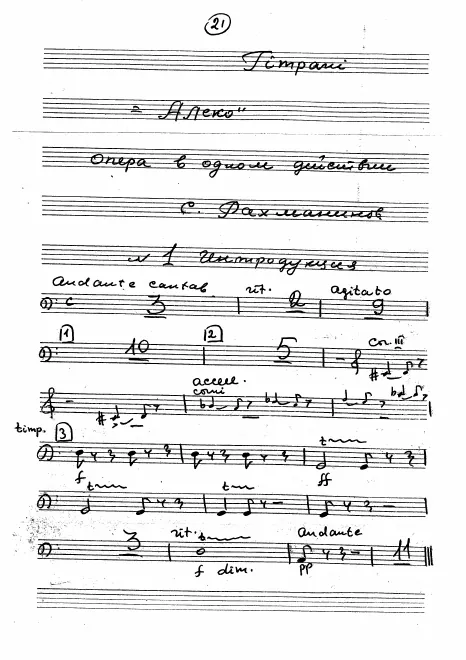 21
Timpani
"Алеко"
Опера в одном действии
С. Рахманинов
№ 1 Интродукция
Andante cantab rit. agitato
c 3 2 9
1 2 Cor. III
10 5
accell.
corni
timp. 3
f ff
rit. Andante
3 11
f dim. pp